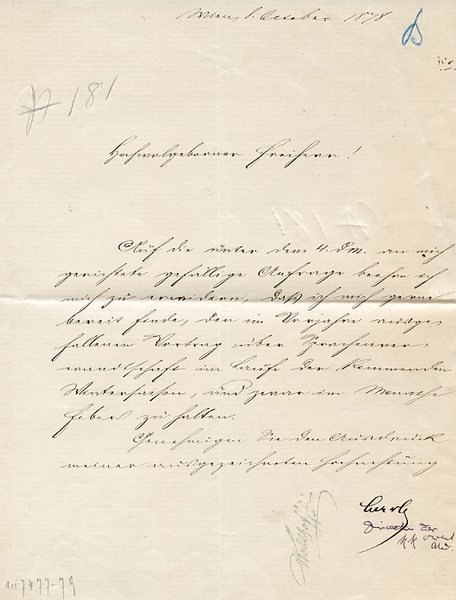 Wien, 8. October 1878
A 181
Hochwolgeborner Freiherr!
Auf die unter dem 4. d.M. an mich
gerichtete gefällige Anfrage beehre ich
mich zu erwidern, daß ich mich gerne
bereit finde, den im Vorjahre ausge
fallenen Vortrag über Sprachenver-
wandtschaft im Laufe der kommenden
Wintersaison, und zwar im Monathe
Feber zu halten.
Genehmigen Sie den Ausdruck
meiner ausgezeichneten Hochachtung
Director der
k k orient
Akd.
7477-79